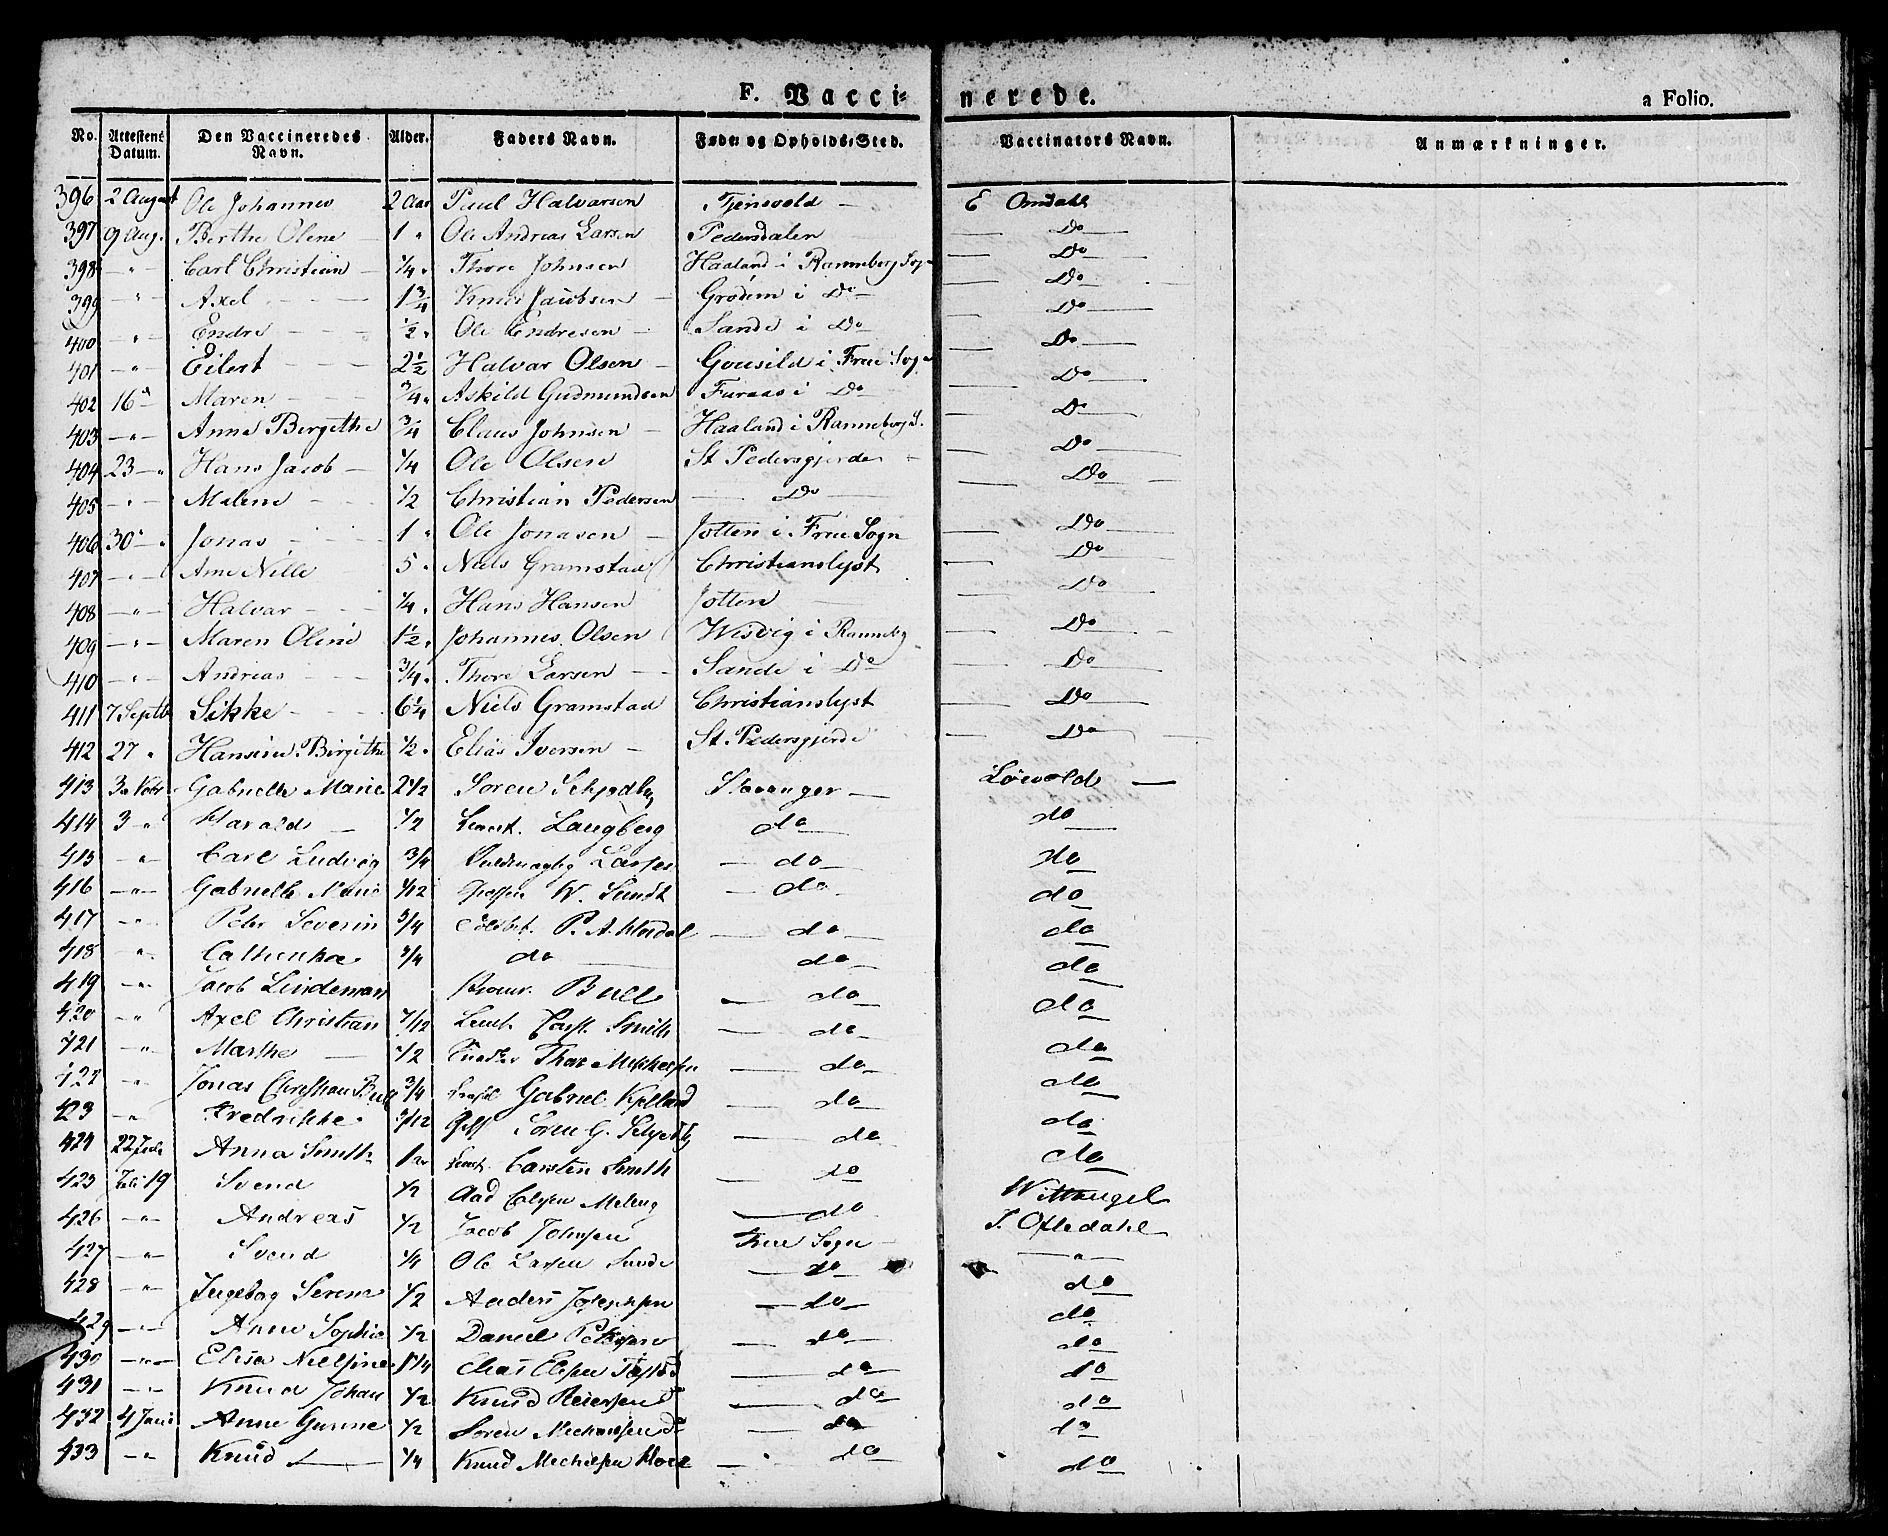 F. Vaccinerede. a Folio.
No. Attestens Datum. Den Vaccineredes Navn. Alder. Faders Navn. Føde- og Opholds-Sted. Vaccinators Navn. Anmærkninger.
396 2 August Ole Johannes 2 Aar Paul Halvarsen Tjensvold — E Omdahl
397 9 Aug. Berthe Olene 1 " Ole Andreas Larsen Pedersdalen — Do —
398 - " - Carl Christian — 1/4 " Thore Johnsen Haaland i Renneberg Sogn — Do —
399 - " - Axel 1 3/4 Knud Jacobsen — Grødem i Do — Do —
400 - " - Endre 1/2 " Ole Endresen — Sande i Do — Do —
401 - " - Eilert 2 1/2 Halvar Olsen — Gousild i Frue Sogn — Do —
402 16 " - Maren 3/4 " Askild Gudmundsen Furaas i Do — Do —
403 - " - Anne Bergethe 3/4 Claus Johnsen — Haaland i Renneberg S. — Do —
404 23 - " Hans Jacob — 1/4 Ole Olsen St Pedersgjerde — Do —
405 - " - Malene 1/2 Christian Pedersen — Do — — Do —
406 30 - " Jonas 1 " Ole Jonasen — Jotten i Frue Sogn — Do —
407 - " - Ane Nille 5 " Niels Gramstad Christianslyst — Do —
408 - " - Halvar 1/4 " Hans Hansen Jotten — — Do
409 - " - Maren Oline 1 1/2 " Johannes Olsen Wisvig i Renneby — Do —
410 - " - Andreas 3/4 " Thore Larsen — Sande i Do — Do —
411 7 Septb Sikke 6 1/4 Niels Gramstad Christianslyst — Do —
412 27 " Hansine Birgithe 1/2 " Elias Iversen — St. Pedersgjerde — Do —
413 3 Febr Gabrielle Marie 2 1/2 Søren Schjødby Stavanger — Løwold —
414 3 " Harald — 1/2 Lieut. Langberg do — do
415 - " - Carl Ludvig 3/4 Larsen — do — do
416 - " - Gabrielle Marie 1/12 W. Sundt — do — do
417 - " - Peter Severin 3/4 P. A. — do — do
418 " - Cathenka 3/4 do — do — do
419 - " - Jacob Lindeman Bull — do do
420 - " Axel Christian 7/12 Lieut. Smith — do do
421 - " - Marthe — 1/2 Thore Mikkelsen — do — do
422 " Jonas Christian Bull 3/4 Gabriel Kjelland — do — do
423 - " Fredrikke 3/12 Søren G. Schjødby — do do
424 22 Anna Smith 1 Lieut. Carsten Smith — do do
425 19 Svend 1/2 Aad Meling — do Wittrugel
426 - " - Andreas 1/2 Jacob Johnsen Frue Sogn — T. Oftedahl
427 - " - Svend 1/4 Ole Larsen Sunde — do — " —
428 - " - Ingebog Serene 1/2 Anders Josephsen — do — do
429 - " - Anne Sophie 1/2 Daniel Petersen — do — do
430 - " - Elisa Nielsine 1/4 Elias — do — do
431 - " - Knud Johan 1/2 Knud Reiersen — do — do
432 4 Juni Anne Gunne 1/2 Søren — do do
433 - " - Knud — 1/4 Knud — do — do